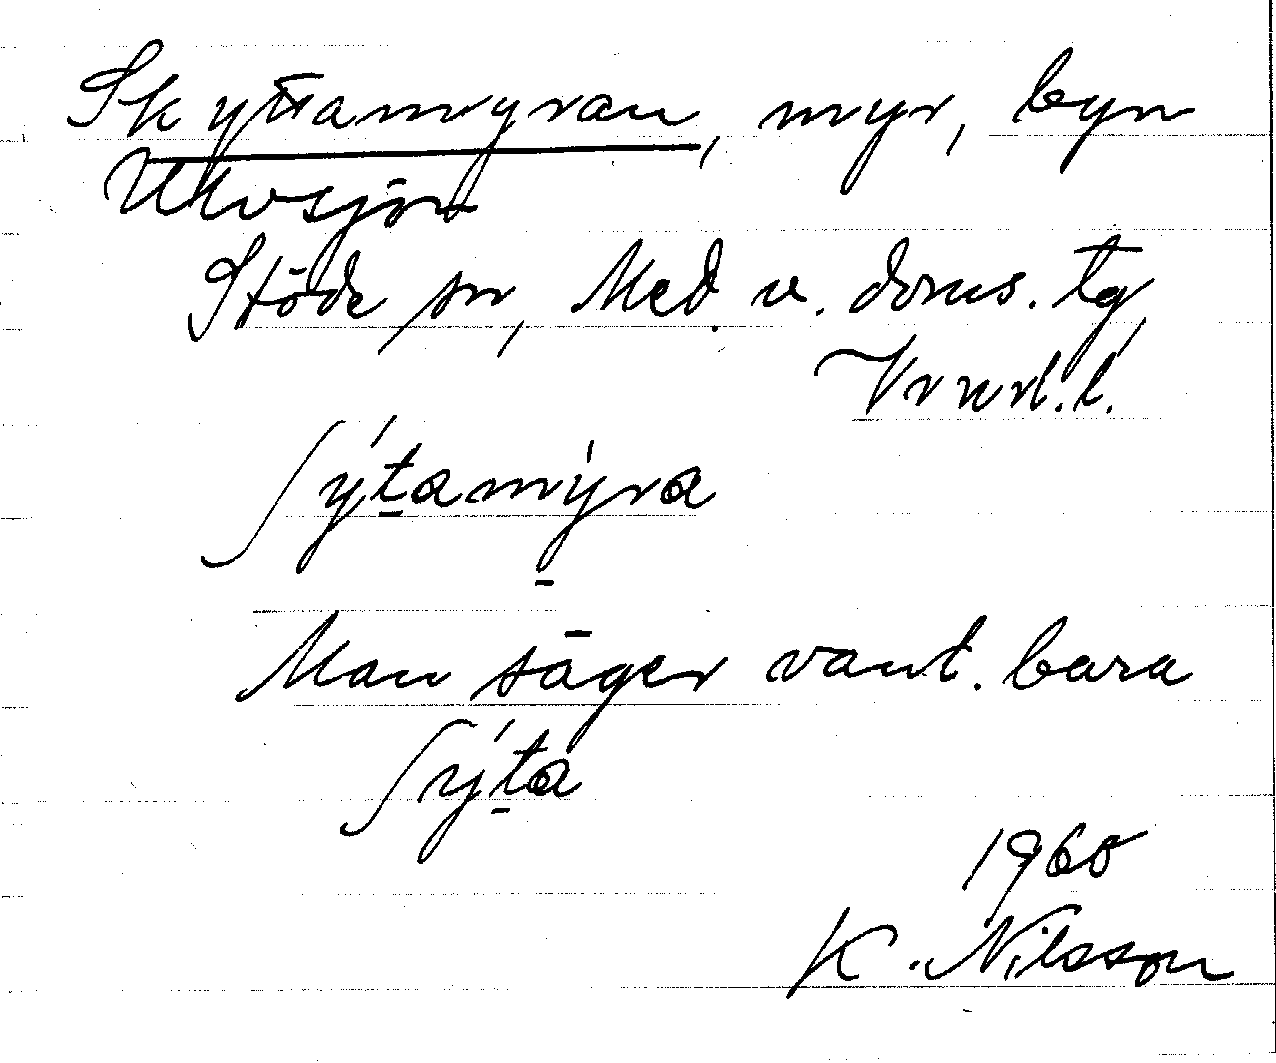 Skyttamyran, myr, byn
Ulvsjön
Stöde sn, Med. v. doms. tg,
ʃýt̲amýra
Man säger vanl. bara
ʃýt̲a
1960
K. Nilsson